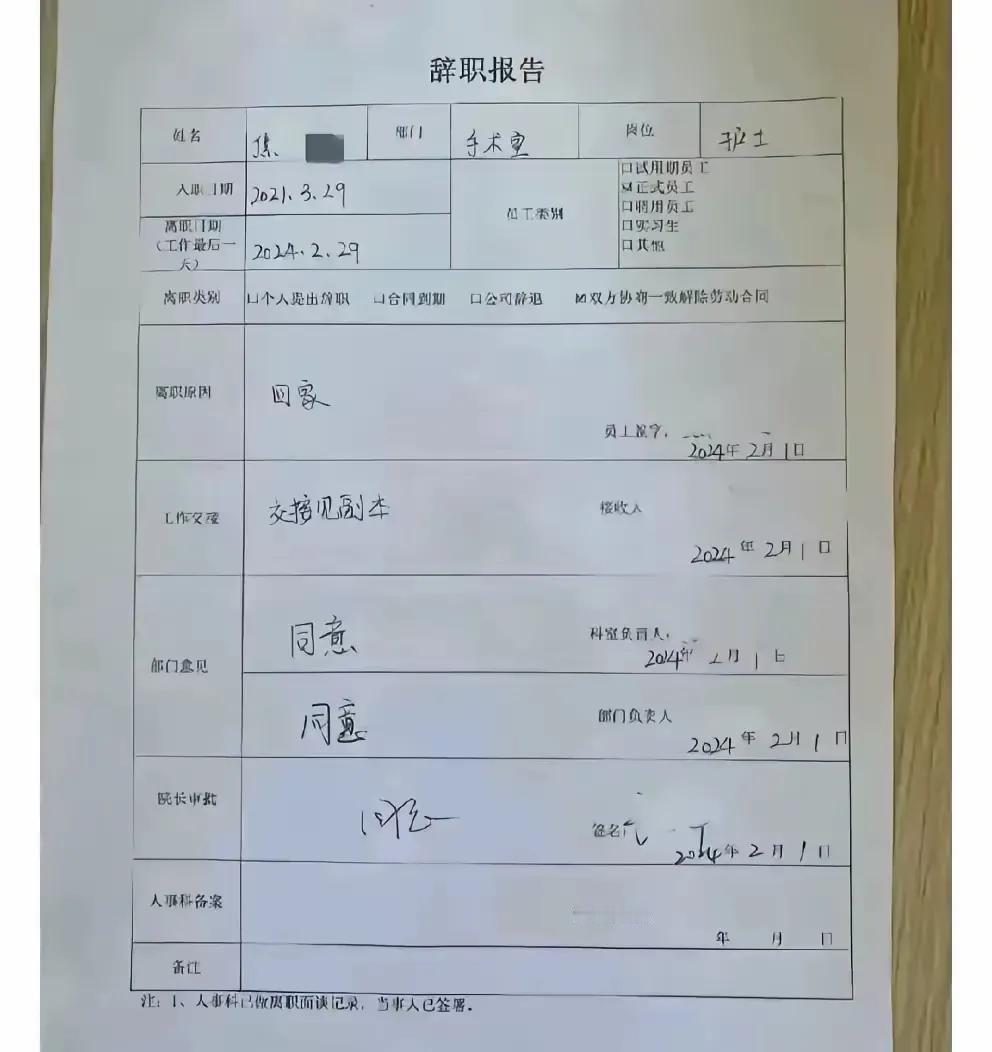 辞职报告
姓名 焦 部门 手术室 岗位 护士
入职日期 2021.3.29
员工类别
□试用期员工
☑正式员工
□聘用员工
□实习生
□其他
离职日期
（工作最后一
天）
2024.2.29
离职类别 □个人提出辞职 □合同到期 □公司辞退 ☑双方协商一致解除劳动合同
离职原因 回家
员工签字：
2024年2月1日
工作交接 交接见副本 接收人
2024年2月1日
部门意见
同意 科室负责人：
2024年2月1日
同意 部门负责人
2024年2月1日
院长审批 同意 签名
2024年2月1日
人事科备案
年 月 日
备注
注：1、人事科已做离职面谈记录，当事人已签署。